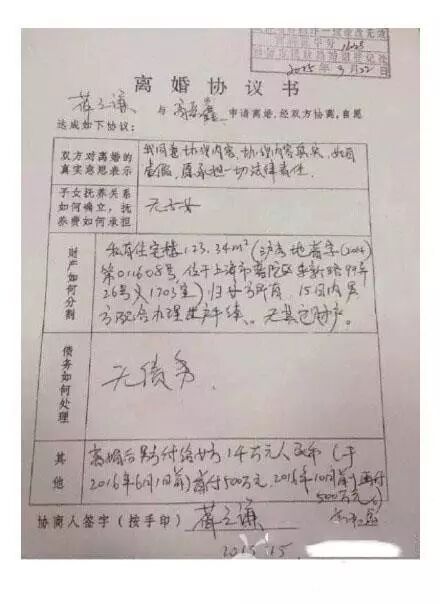 2015年3月22日
离婚协议书
薛之谦 与 高磊鑫 申请离婚,经双方协商,自愿
达成如下协议:
双方对离婚的真实意思表示
我同意协议内容,协议内容真实,如有
虚假,愿承担一切法律责任.
子女抚养关系如何确立,抚养费如何承担
无子女
财产如何分割
私有住宅楼123.34m²(沪房地普字(2004)
第011608号 位于上海市普陀区 99弄
26号 1703室)归女方所有,15日内男
方配合办理过户手续。无其它财产。
债务如何处理
无债务.
其他
离婚后男方付给女方1千万元人民币(于
2016年6月1日前)首付500万元,2016年10月前再付
500万元.
协商人签字(按手印) 薛之谦
2015.